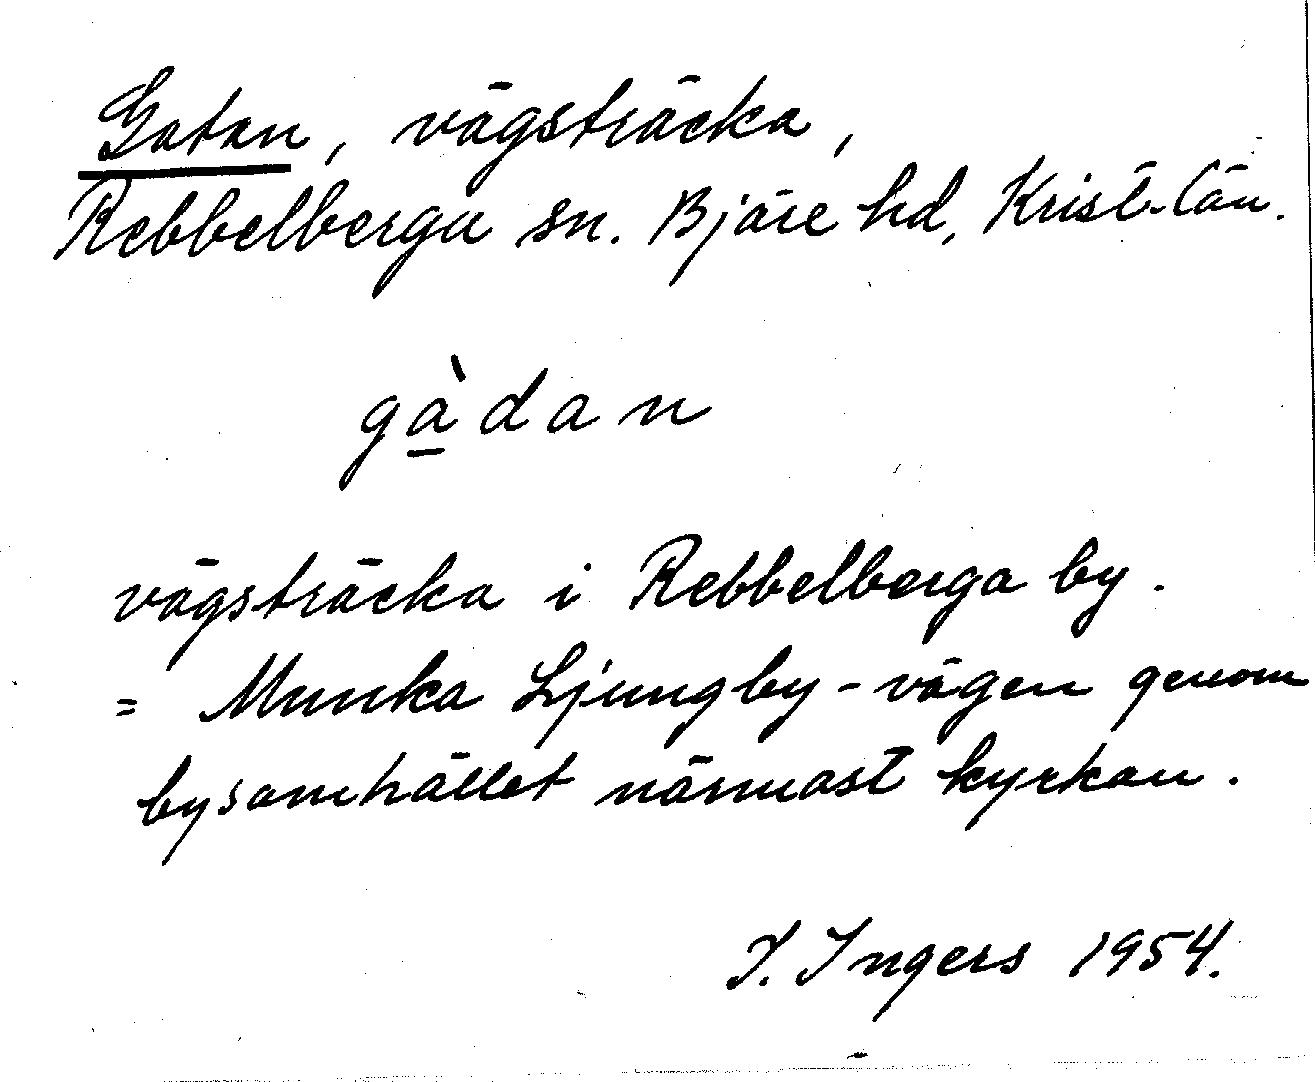 Gatan, vägsträcka,
Rebbelberga sn. Bjäre hd, Krist. län.
gàdan
vägsträcka i Rebbelberga by.
= Munka Ljungby-vägen genom
bysamhället närmast kyrkan.
I. Ingers 1954.